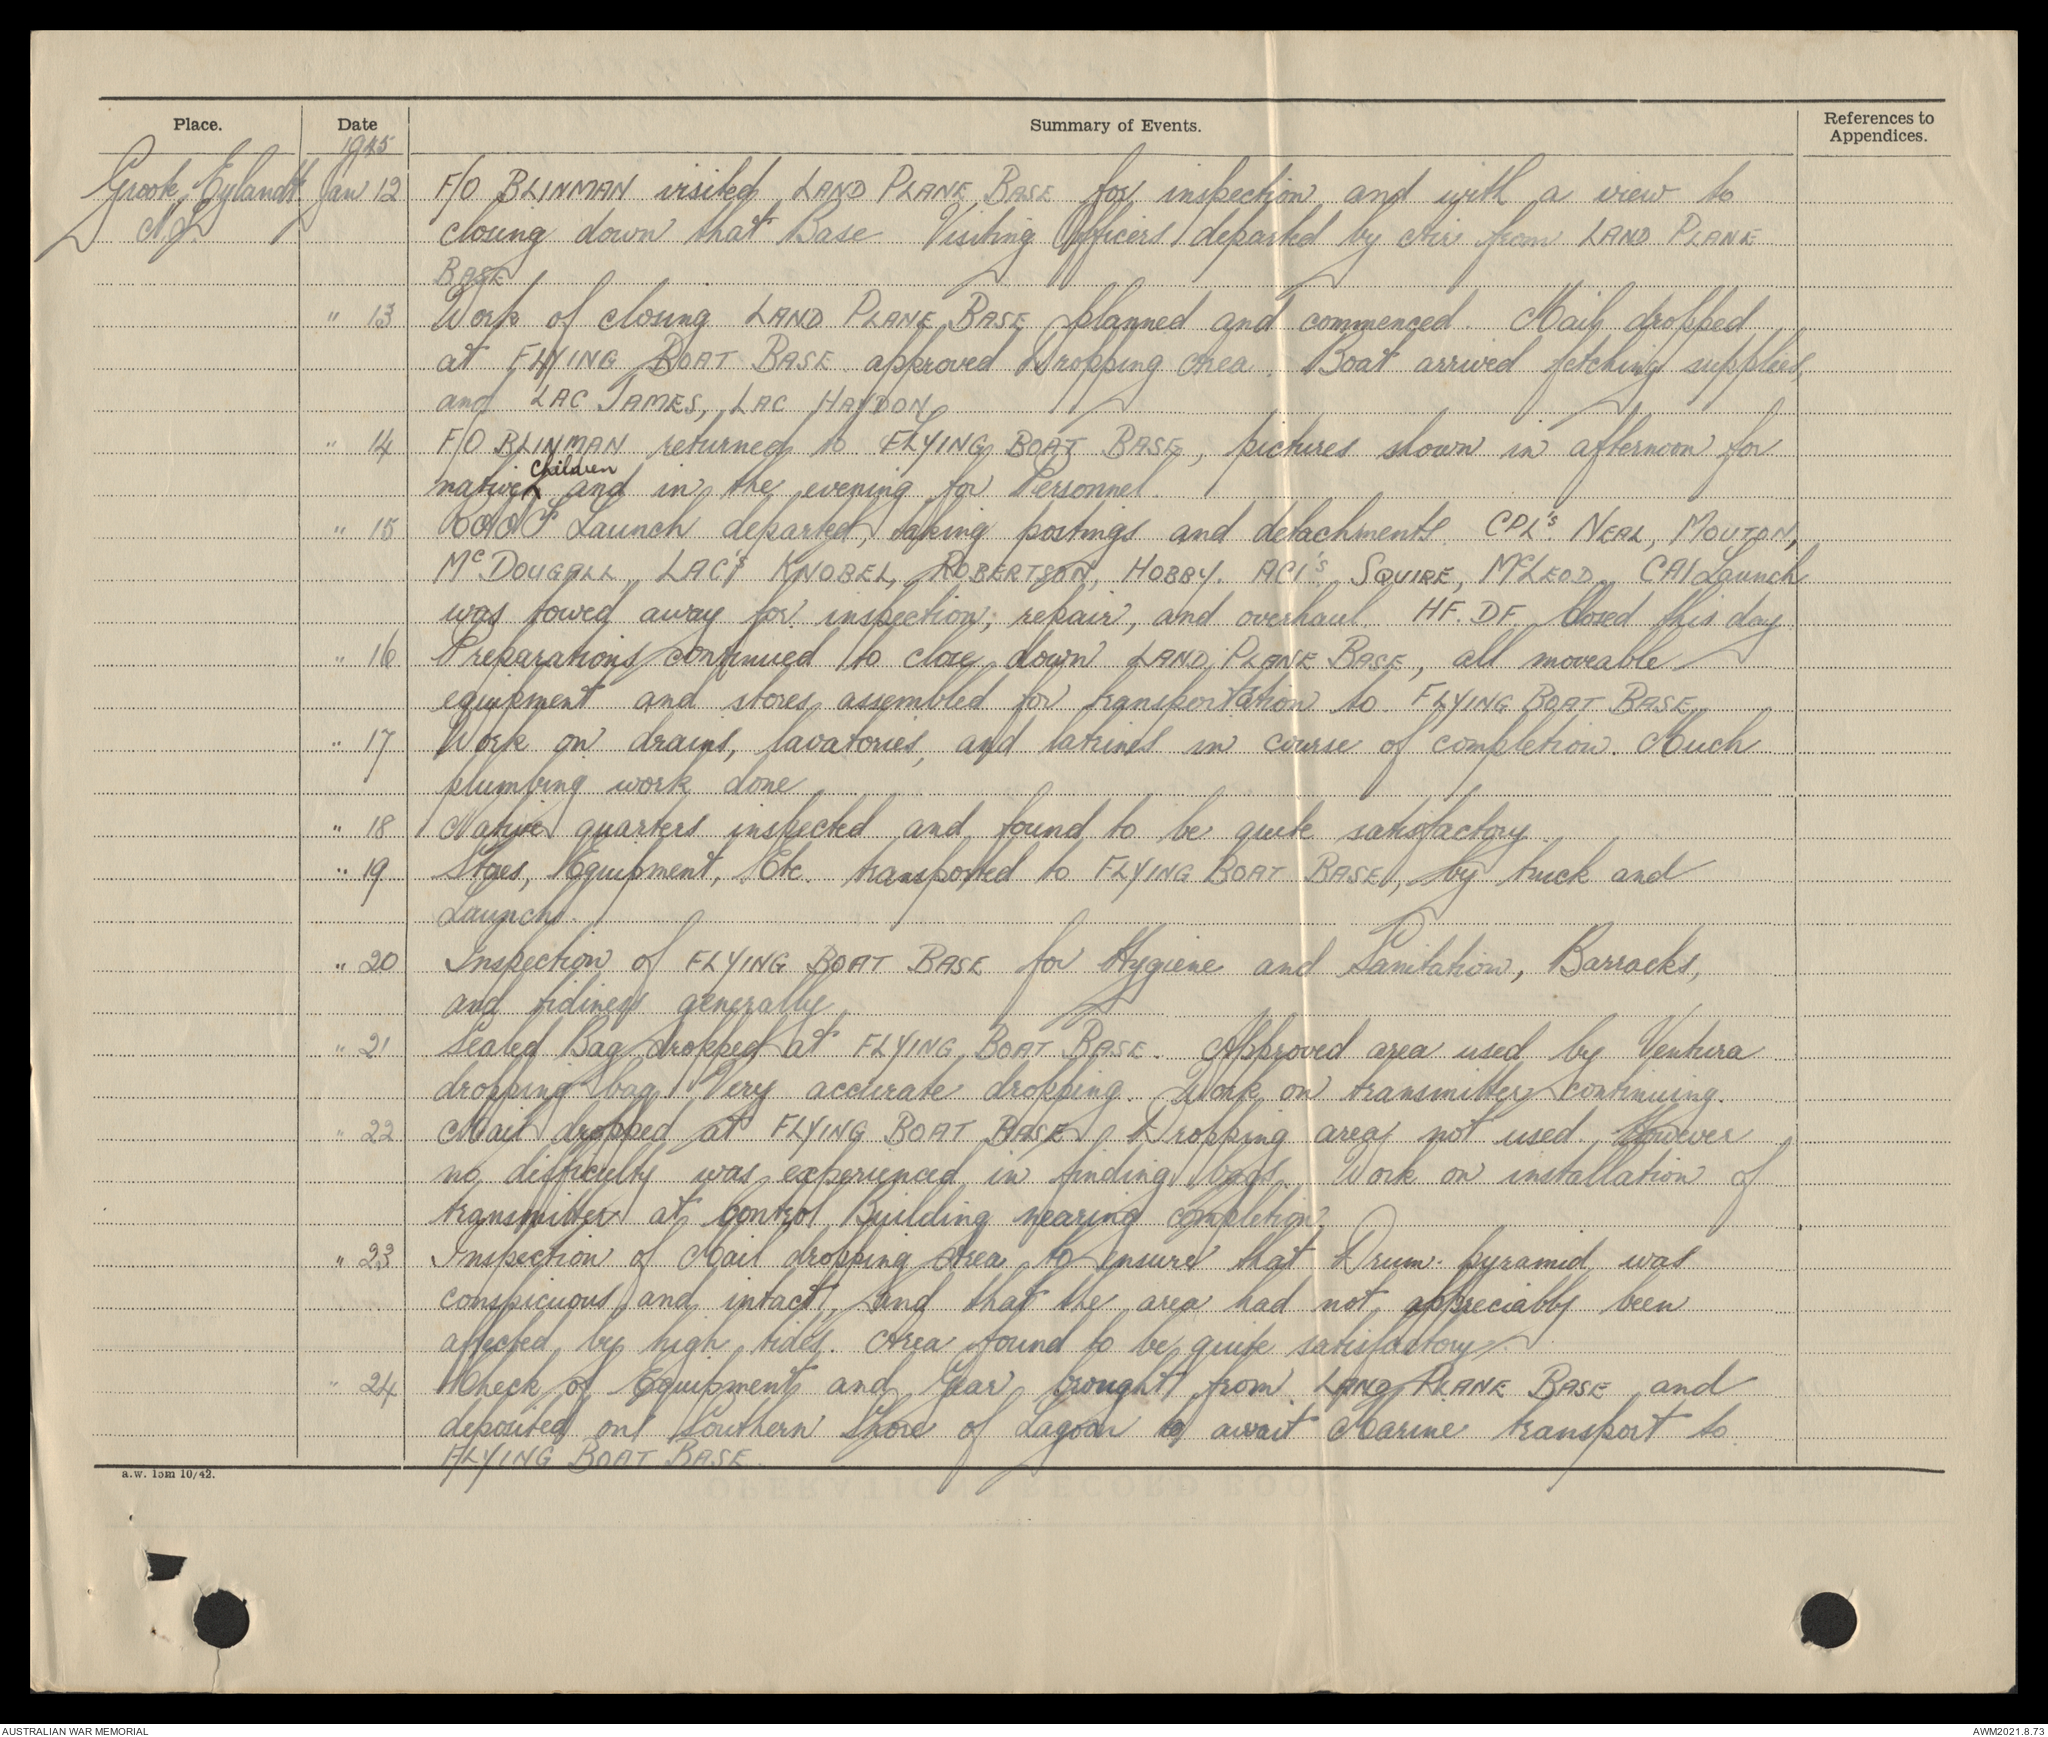 Place. Date Summary of Events. References to Appendices.
1945
Groote Eylandt Jan 12 F/O BLINMAN visited LAND PLANE BASE for inspection and with a view to
N.T. closing down that Base Visiting Officers departed by Air from LAND PLANE
BASE
" 13 Work of closing LAND PLANE BASE planned and commenced. Mail dropped
at FLYING BOAT BASE approved Dropping Area. Boat arrived fetching supplies,
and LAC JAMES, LAC HAYDON
" 14 F/O BLINMAN returned to FLYING BOAT BASE, pictures shown in afternoon for
children
native and in the evening for Personnel.
" 15 RAAF Launch departed, taking postings and detachments. CPL's. NEAL, MOUTON,
McDOUGALL, LAC's KNOBEL, ROBERTSON, HOBBY. AC1's SQUIRE, McLEOD. CA1 Launch
was towed away for inspection, repair, and overhaul. HF. DF. Closed this day.
" 16 Preparations continued to close down LAND PLANE BASE, all moveable
equipment and stores assembled for transportation to FLYING BOAT BASE
" 17 Work on drains, lavatories, and latrines in course of completion. Much
plumbing work done
" 18 Native quarters inspected and found to be quite satisfactory.
" 19 Stores, Equipment, Etc. transported to FLYING BOAT BASE, by truck and
Launch.
" 20 Inspection of FLYING BOAT BASE for Hygiene and Sanitation, Barracks,
and tidiness generally
" 21 Sealed Bag dropped at FLYING BOAT BASE. Approved area used by Ventura
dropping bag. Very accurate dropping. Work on transmitter continuing.
" 22 Mail dropped at FLYING BOAT BASE, Dropping area not used. However
no difficulty was experienced in finding bags. Work on installation of
transmitter at Control Building nearing completion.
" 23 Inspection of Mail dropping Area to ensure that Drum pyramid was
conspicuous and intact, and that the area had not appreciably been
affected by high tides. Area found to be quite satisfactory.
" 24 Check of Equipment and Gear brought from LAND PLANE BASE and
deposited on Southern Shore of Lagoon to await Marine transport to
FLYING BOAT BASE.
a.w. 15m 10/42.
AUSTRALIAN WAR MEMORIAL AWM2021.8.73